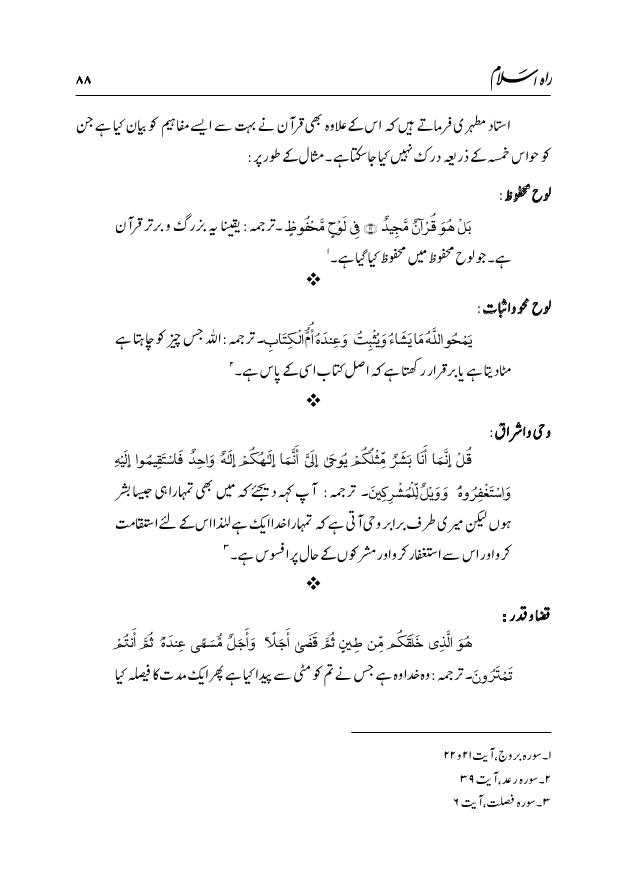 راہ اسلام ۸۸
استاد مطہری فرماتے ہیں کہ اس کے علاوہ بھی قرآن نے بہت سے ایسے مفاہیم کو بیان کیا ہے جن
کو حواس خمسہ کے ذریعہ درک نہیں کیا جاسکتا ہے۔ مثال کے طور پر:
لوح محفوظ:
بَلْ هُوَ قُرْآنٌ مَّجِيدٌ ﴿۲۱﴾ فِي لَوْحٍ مَّحْفُوظٍ ۔ترجمہ: یقینا یہ بزرگ و برتر قرآن
ہے۔ جو لوح محفوظ میں محفوظ کیا گیا ہے۔۱
❖
لوح محو واثبات:
يَمْحُو اللَّهُ مَا يَشَاءُ وَيُثْبِتُ وَعِندَهُ أُمُّ الْكِتَابِ۔ ترجمہ: اللہ جس چیز کو چاہتا ہے
مٹادیتا ہے یا برقرار رکھتا ہے کہ اصل کتاب اسی کے پاس ہے۔۲
❖
وحی واشراق:
قُلْ إِنَّمَا أَنَا بَشَرٌ مِّثْلُكُمْ يُوحَىٰ إِلَيَّ أَنَّمَا إِلَٰهُكُمْ إِلَٰهٌ وَاحِدٌ فَاسْتَقِيمُوا إِلَيْهِ
وَاسْتَغْفِرُوهُ وَوَيْلٌ لِّلْمُشْرِكِينَ۔ ترجمہ: آپ کہہ دیجئے کہ میں بھی تمہارا ہی جیسا بشر
ہوں لیکن میری طرف برابر وحی آتی ہے کہ تمہارا خدا ایک ہے لہٰذا اس کے لئے استقامت
کرو اور اس سے استغفار کرو اور مشرکوں کے حال پر افسوس ہے۔۳
❖
قضاو قدر:
هُوَ الَّذِي خَلَقَكُم مِّن طِينٍ ثُمَّ قَضَىٰ أَجَلًا وَأَجَلٌ مُّسَمًّى عِندَهُ ثُمَّ أَنتُمْ
تَمْتَرُونَ۔ ترجمہ: وہ خدا وہ ہے جس نے تم کو مٹی سے پیدا کیا ہے پھر ایک مدت کا فیصلہ کیا
۱۔ سورہ بروج، آیت ۲۱و۲۲
۲۔ سورہ رعد، آیت ۳۹
۳۔ سورہ فصلت، آیت ۶